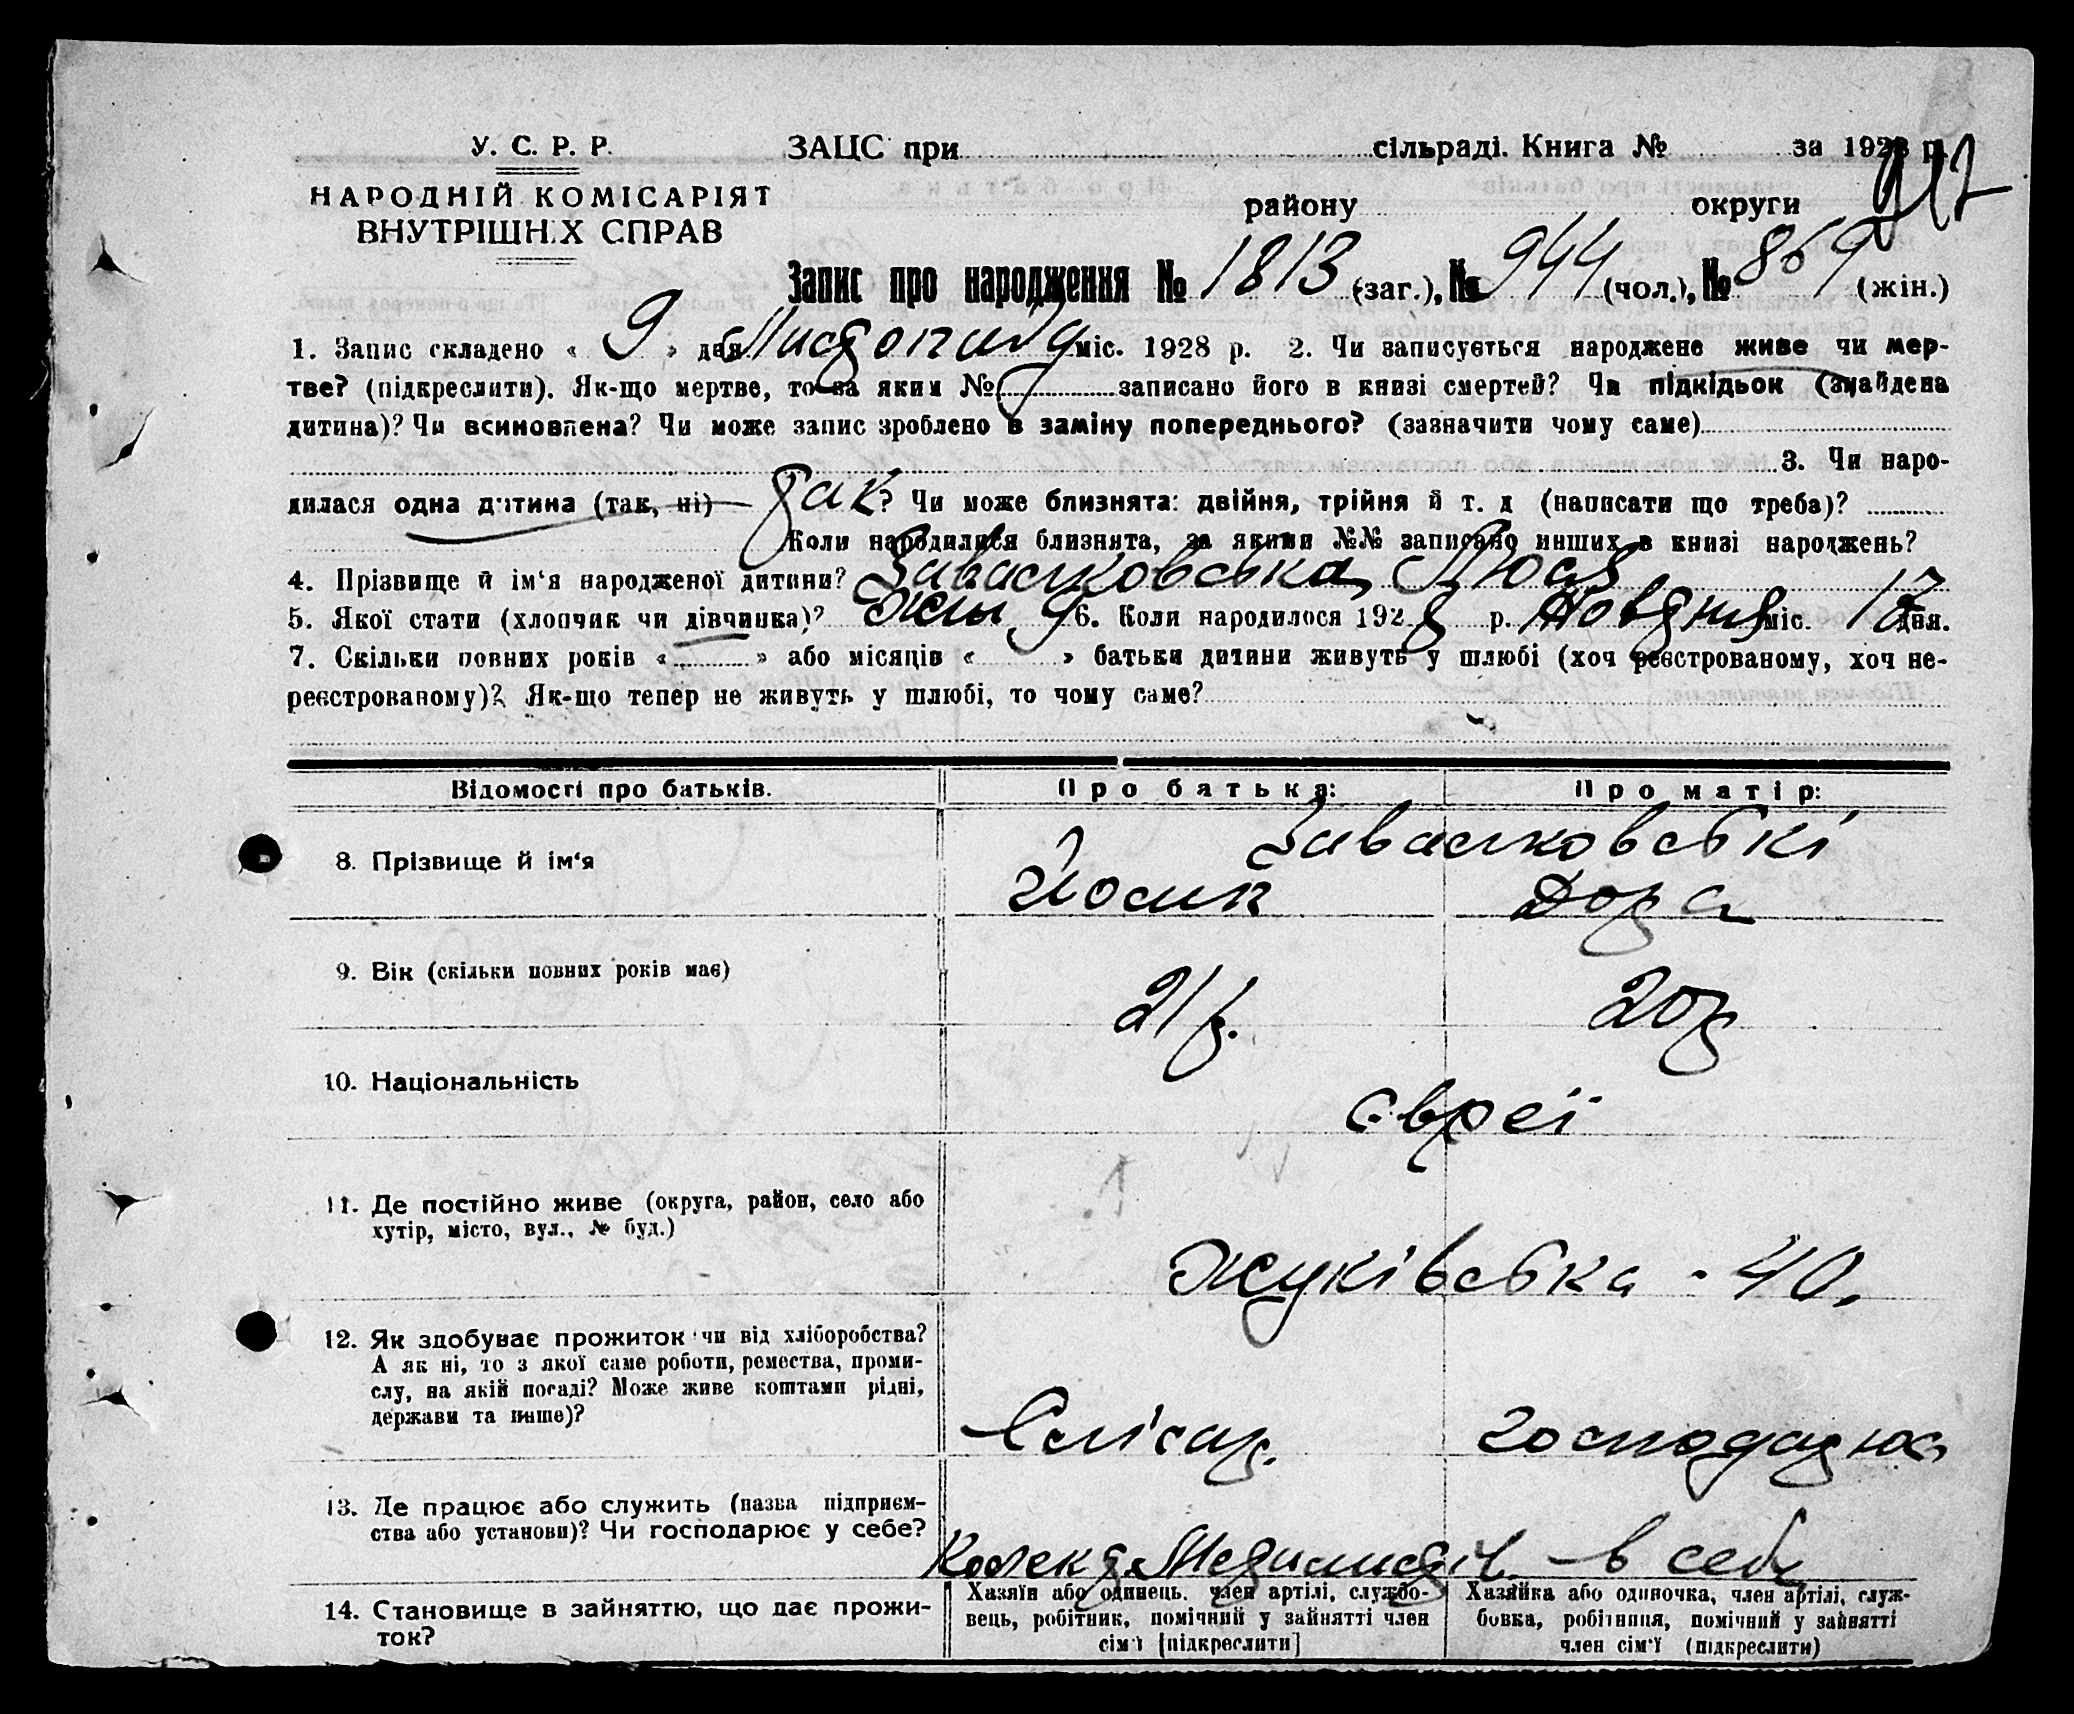 У. С. Р. Р.
НАРОДНІЙ КОМІСАРІЯТ
ВНУТРІШНИХ СПРАВ
ЗАЦС при сільраді. Книга № за 1928 р.
району округи
Запис про народження № 1813 (заг.), № 944 (чол.), № 869 (жін.)
1. Запис складено « 9 » дня Листопада міс. 1928 р. 2. Чи записується народжене живе чи мер-
тве? (підкреслити). Як-що мертве, то за яким № записано його в книзі смертей? Чи підкідьок (знайдена
дитина)? Чи всиновлена? Чи може запис зроблено в заміну попереднього? (зазначити чому саме)
3. Чи наро-
дилася одна дитина (так, ні) так? Чи може близнята: двійня, трійня й т. д (написати що треба)?
Коли народилися близнята, за якими №№ записано инших в книзі народжень?
4. Прізвище й ім‘я народженої дитини?
5. Якої стати (хлопчик чи дівчинка)? жін 6. Коли народилося 1928 р. Жовтня міс. 17 дня.
7. Скільки повних років « » або місяців « » батьки дитини живуть у шлюбі (хоч реєстрованому, хоч не-
реєстрованому)? Як-що тепер не живуть у шлюбі, то чому саме?
Відомості про батьків. Про батька: Про матір:
8. Прізвище й ім‘я
Дора
9. Вік (скільки повних років має)
21 р. 20 р
10. Національність
євреї
11. Де постійно живе (округа, район, село або
хутір, місто, вул., № буд.)
Жуківська - 40.
12. Як здобуває прожиток чи від хліборобства?
А як ні, то з якої саме роботи, ремества, проми-
слу, на якій посаді? Може живе коштами рідні,
держави та инше)?
Слісар. господарює
13. Де працює або служить (назва підприєм-
ства або установи)? Чи господарює у себе?
Колект. в себе
14. Становище в зайняттю, що дає прожи-
ток?
Хазяїн або одинець, член артілі, службо-
вець, робітник, помічний у зайнятті член
сім‘ї [підкреслити]
Хазяйка або одиночка, член артілі, служ-
бовка, робітниця, помічний у зайнятті
член сім‘ї (підкреслити)